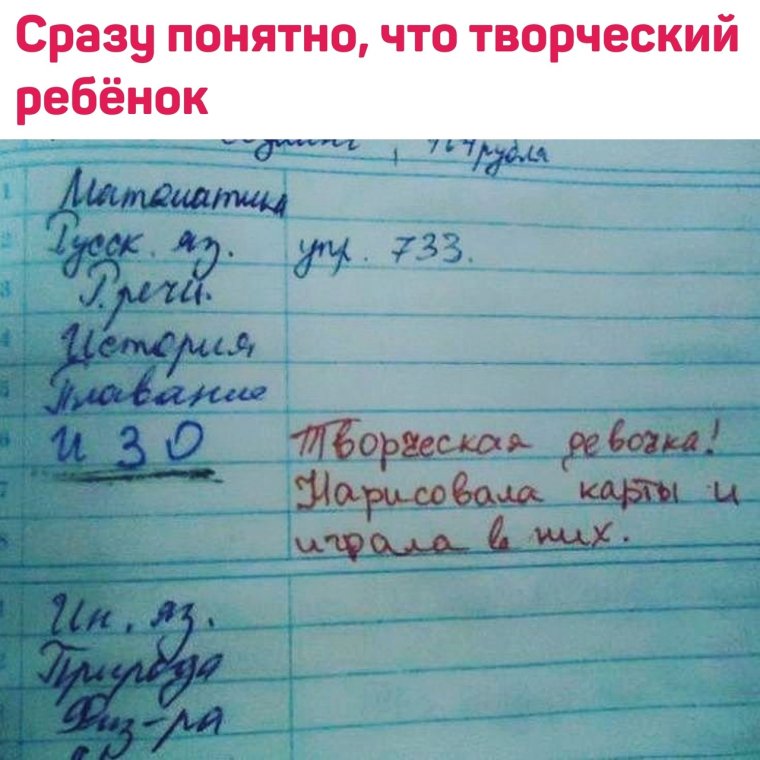 Сразу понятно, что творческий
ребёнок
164 рубля
1 Математика
2 Русск. яз. упр. 733.
3 Р. речи.
4 История
5 Плавание
6 ИЗО Творческая девочка!
7 Нарисовала карты и
8 играла в них.
1 Ин. яз.
2 Природа
Физ-ра